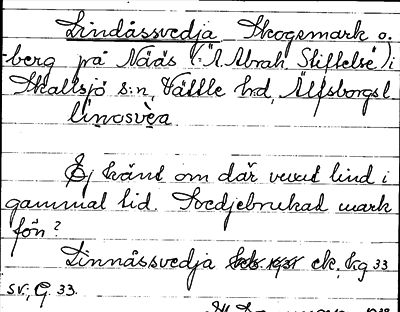 Lindåssvedja Skogsmark o.
-berg på Nääs (A Abrah. Stiftelse) i
Skallsjö s:n, Vättle hd, Älfsborgs l.
linosvèa
Ej känt om där vuxit lind i
gammal tid. Svedjebrukad mark
förr?
Linnåssvedja ek. kg 33
sv., G. 33.